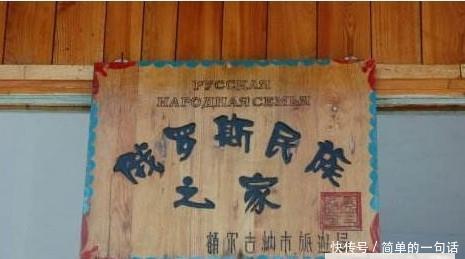 РУССКАЯ
НАРОДНАЯ СЕМЬЯ
俄罗斯民族
之家
额尔古纳市旅游局
快传号/简单的一句话